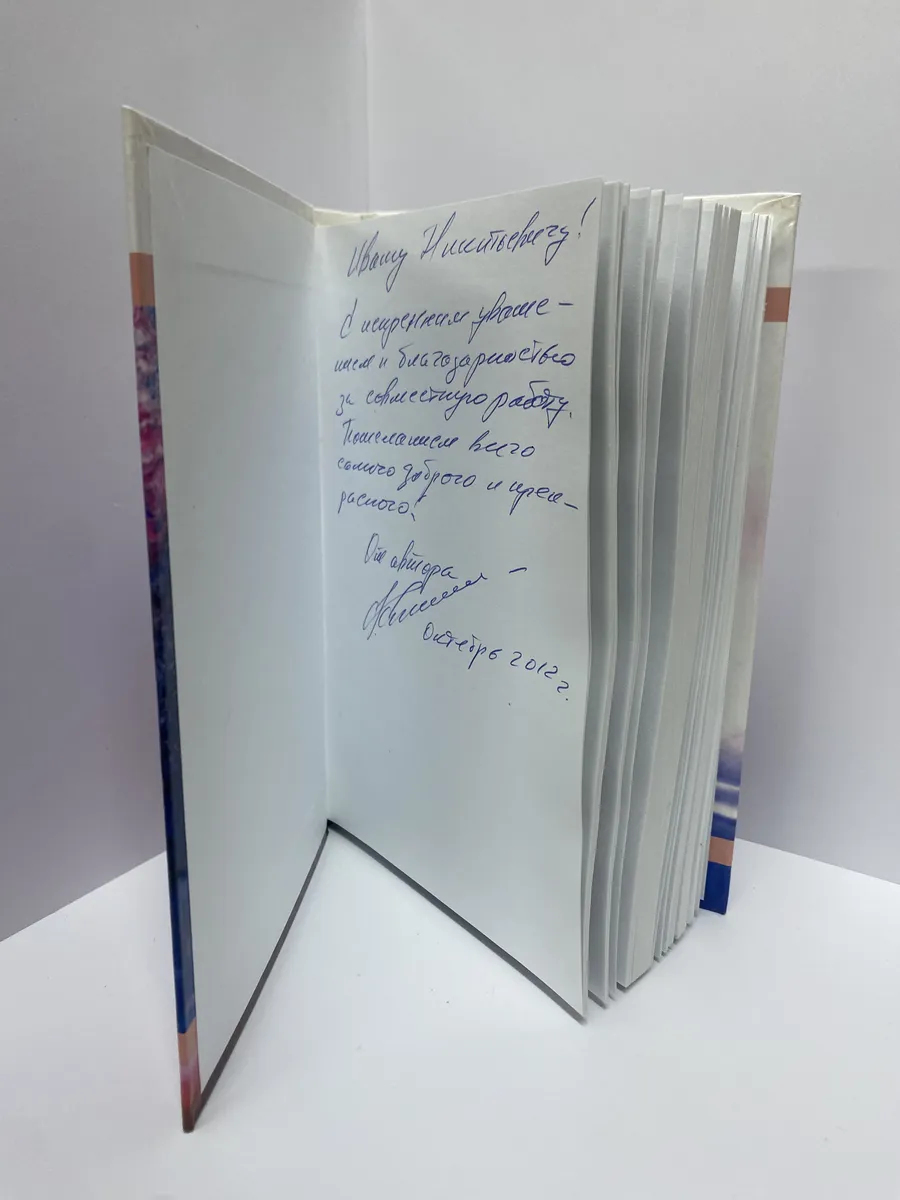 Ивану Никитьевичу!
С искренним уваже-
нием и благодарностью
за совместную работу.
Пожеланием всего
самого доброго и прек-
расного!
От автора
Октябрь 2012 г.